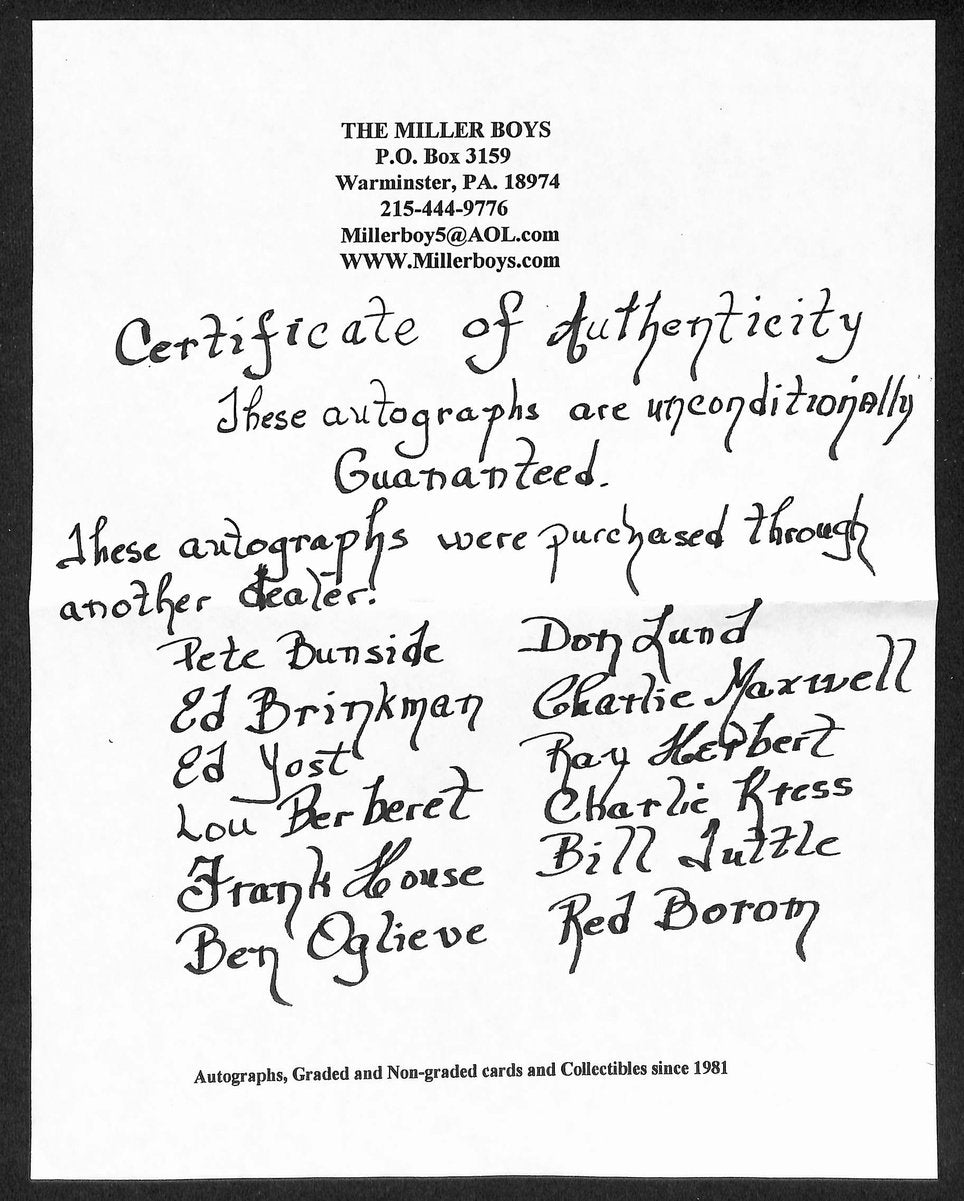 THE MILLER BOYS
P.O. Box 3159
Warminster, PA. 18974
215-444-9776
Millerboy5@AOL.com
WWW.Millerboys.com
Certificate of Authenticity
These autographs are unconditionally
Guananteed.
These autographs were purchased through
another dealer.
Pete Bunside
Don Lund
Ed Brinkman
Charlie Maxwell
Ed Yost
Ray Herbert
Lou Berberet
Charlie Kress
Frank House
Bill Tuttle
Ben Oglieve
Red Borom
Autographs, Graded and Non-graded cards and Collectibles since 1981